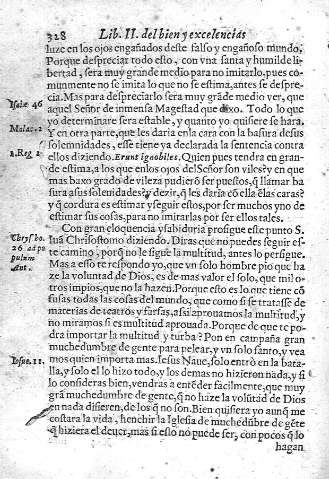 328 Lib. II. del bien y excelencias
luze en los ojos engañados deste falso y engañoso mundo.
Porque despreciar todo esto, con vna santa y humilde li-
bertad, sera muy grande medio para no imitarlo, pues co-
munmente no se imita lo que no se estima, antes se despre-
cia. Mas para despreciarlo sera muy grāde medio ver, que
Isaiæ 46 aquel Señor de inmensa Magestad que dixo. Todo lo que
yo determinare sera estable, y quanto yo quisiere se hara.
Malac. 2 Y en otra parte, que les daria en la cara con la basura de sus
solemnidades, esse tiene ya declarada la sentencia contra
1. Reg. 2 ellos diziendo. Erunt ignobiles. Quien pues tendra en gran-
de estima, a los que en los ojos del Señor son viles? y en que
mas baxo grado de vileza pudierō ser puestos, q̄ llamar ba
sura a sus solenidades? y dezir, q̄ les dara cō ella ē las caras?
y q̄ cordura es estimar y seguir estos, por ser muchos y no de
estimar sus cosas, para no imitarlas por ser ellos tales.
Con gran eloquencia y sabiduria prosigue este punto S.
Chryf. ho. Iuā Chrisostomo diziendo. Diras que no puedes seguir es-
26. ad po te camino, porq̄ no le sigue la multitud, antes lo persigue.
pulum Mas a esso te respondo yo, que vn solo hombre pio que ha-
Ant. ze la voluntad de Dios, es de mas valor el solo, que mil o-
tros impios, que no la hazen. Porque esto es lo que tiene cō
fusas todas las cosas del mundo, que como si se tratasse de
materias de teatros y farsas, assi aprouamos la multitud, y
no miramos si es multitud aprouada. Porque de que te po-
dra importar la multitud y turba? Pon en campaña gran
muchedumbre de gente para pelear, y vn solo santo, y vea
Iosue. 11. mos quien importa mas. Iesus Naue, solo entrò en la bata-
lla, y solo el lo hizo todo, y los demas no hizieron nada, y si
lo consideras bien, vendras a entēder facilmente, que muy
grā muchedumbre de gente, q̄ no haze la volūtad de Dios
en nada difieren, de los q̄ no son. Bien quisiera yo aunq̄ me
costara la vida, henchir la Iglesia de muchedūbre de gēte
q̄ hiziera el deuer, mas si esso no puede ser, con pocos q̄ lo
hagan